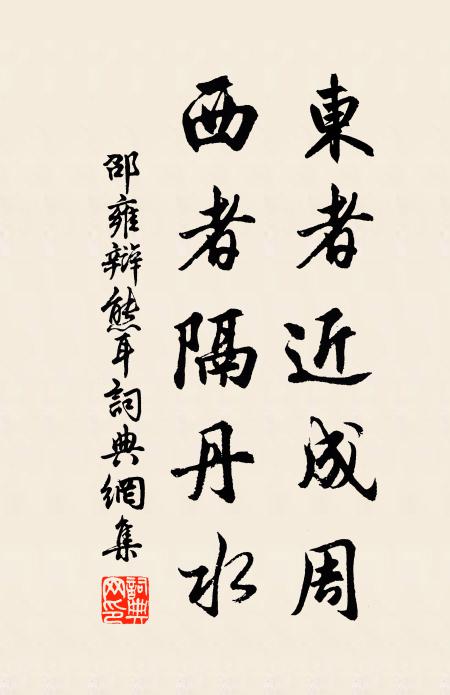 東者近成周
西者隔丹水
邵雍辯熊耳詞典網集